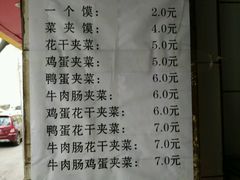 一个馍: 2.0元
菜夹馍: 4.0元
花干夹菜: 5.0元
鸡蛋夹菜: 5.0元
鸭蛋夹菜: 6.0元
牛肉肠夹菜: 6.0元
鸡蛋花干夹菜: 6.0元
鸭蛋花干夹菜: 7.0元
牛肉肠花干夹菜: 7.0元
牛肉肠鸡蛋夹菜: 7.0元